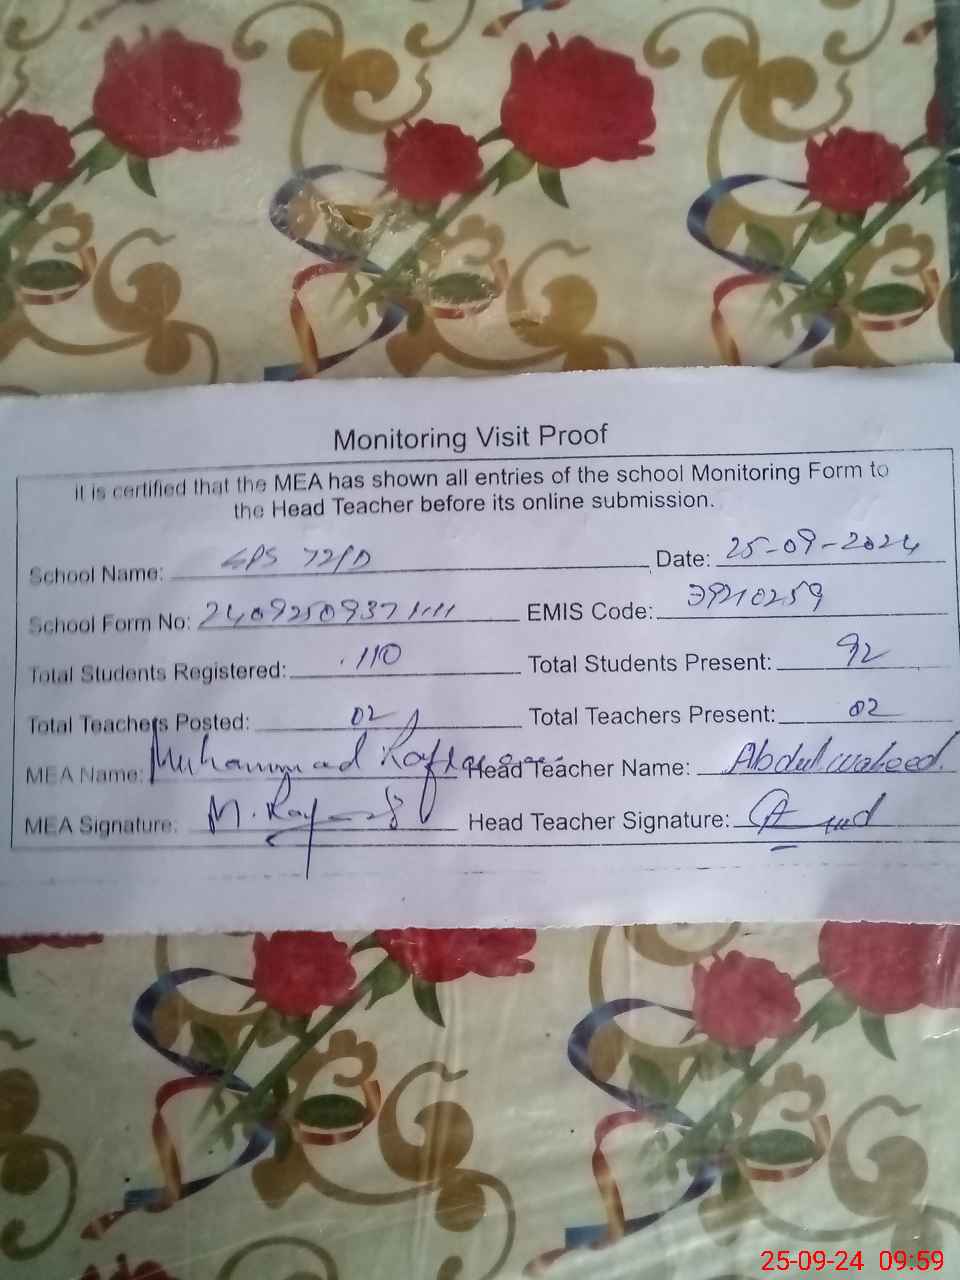 Monitoring Visit Proof
it is certified that the MEA has shown all entries of the school Monitoring Form to
the Head Teacher before its online submission.
School Name: GPS 72/D Date: 25-09-2024
School Form No: EMIS Code: 39210259
Total Students Registered: 110 Total Students Present: 92
Total Teachers Posted: 02 Total Teachers Present: 02
MEA Name: Muhammad Head Teacher Name: Abdul waheed
MEA Signature: Head Teacher Signature:
25-09-24 09:59